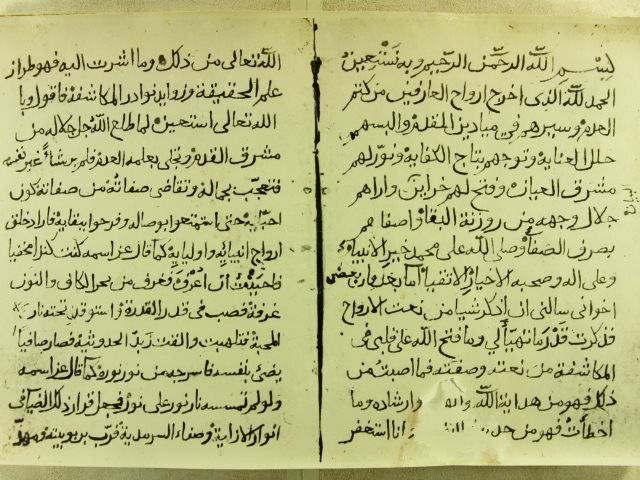 بسم الله الرحمن الرحيم وبه نستعين
الحمد لله الذى اخرج ارواح العارفين من كتم
العدم وسيرهم في ميادين المقدم والبسهم
حلل العناية وتوجهم بتاج الكفاية ونور لهم
مشرق العيان وفتح لهم خزاين واراهم
جلال وجهه من روزنة البقا واصفاهم
بصرف الصفا وصلى الله على محمد خير الانبياء
وعلى اله وصحبه الاخيار الاتقيا اما بعد فان بعض
اخوانى سالنى ان اذكر شيا من نعت الارواح
فذكرت قدر ما تهيأ لي وما فتح الله على قلبى فى
المكاشفة من نعته وصفته فما اصبت من
ذلك فهو من هداية الله وارشاده وما
اخطأت فهو من وانا استغفر
الله تعالى من ذلك وما اشرت اليه فهو طراز
علم الحقيقة ونوادر المكاشفة فاقول وبا
الله تعالى استعين لما طاح الله جل جلاله من
مشرق القدم وتجلى بعلمه العدم فلم ير شاء غير نفسه
فتعجب بجماله وتقاضى صفاته من صفاته كون
احبايه حتى استمتعوا بوصاله وفرحوا ببقايه فاراد خلق
ارواح انبيايه واوليايه كما قال عز اسمه كنت كنزا مخفيا
فاحببت ان اعرف فغرف من بحر الكاف والنون
غرفة فصب فى قدر القدرة واستوقد تحته نار
المحبة فتاهبت والقت زبد الحدوثية فصار صافيا
يضئ بنفسه فاسرجه من نور نوره كما قال عز اسمه
ولو لم تمسسه نار نور على نور فجعل قرار ذلك الصافى
انوار الازلية وصفاء السرمدية قرب بربوبيته ومهد